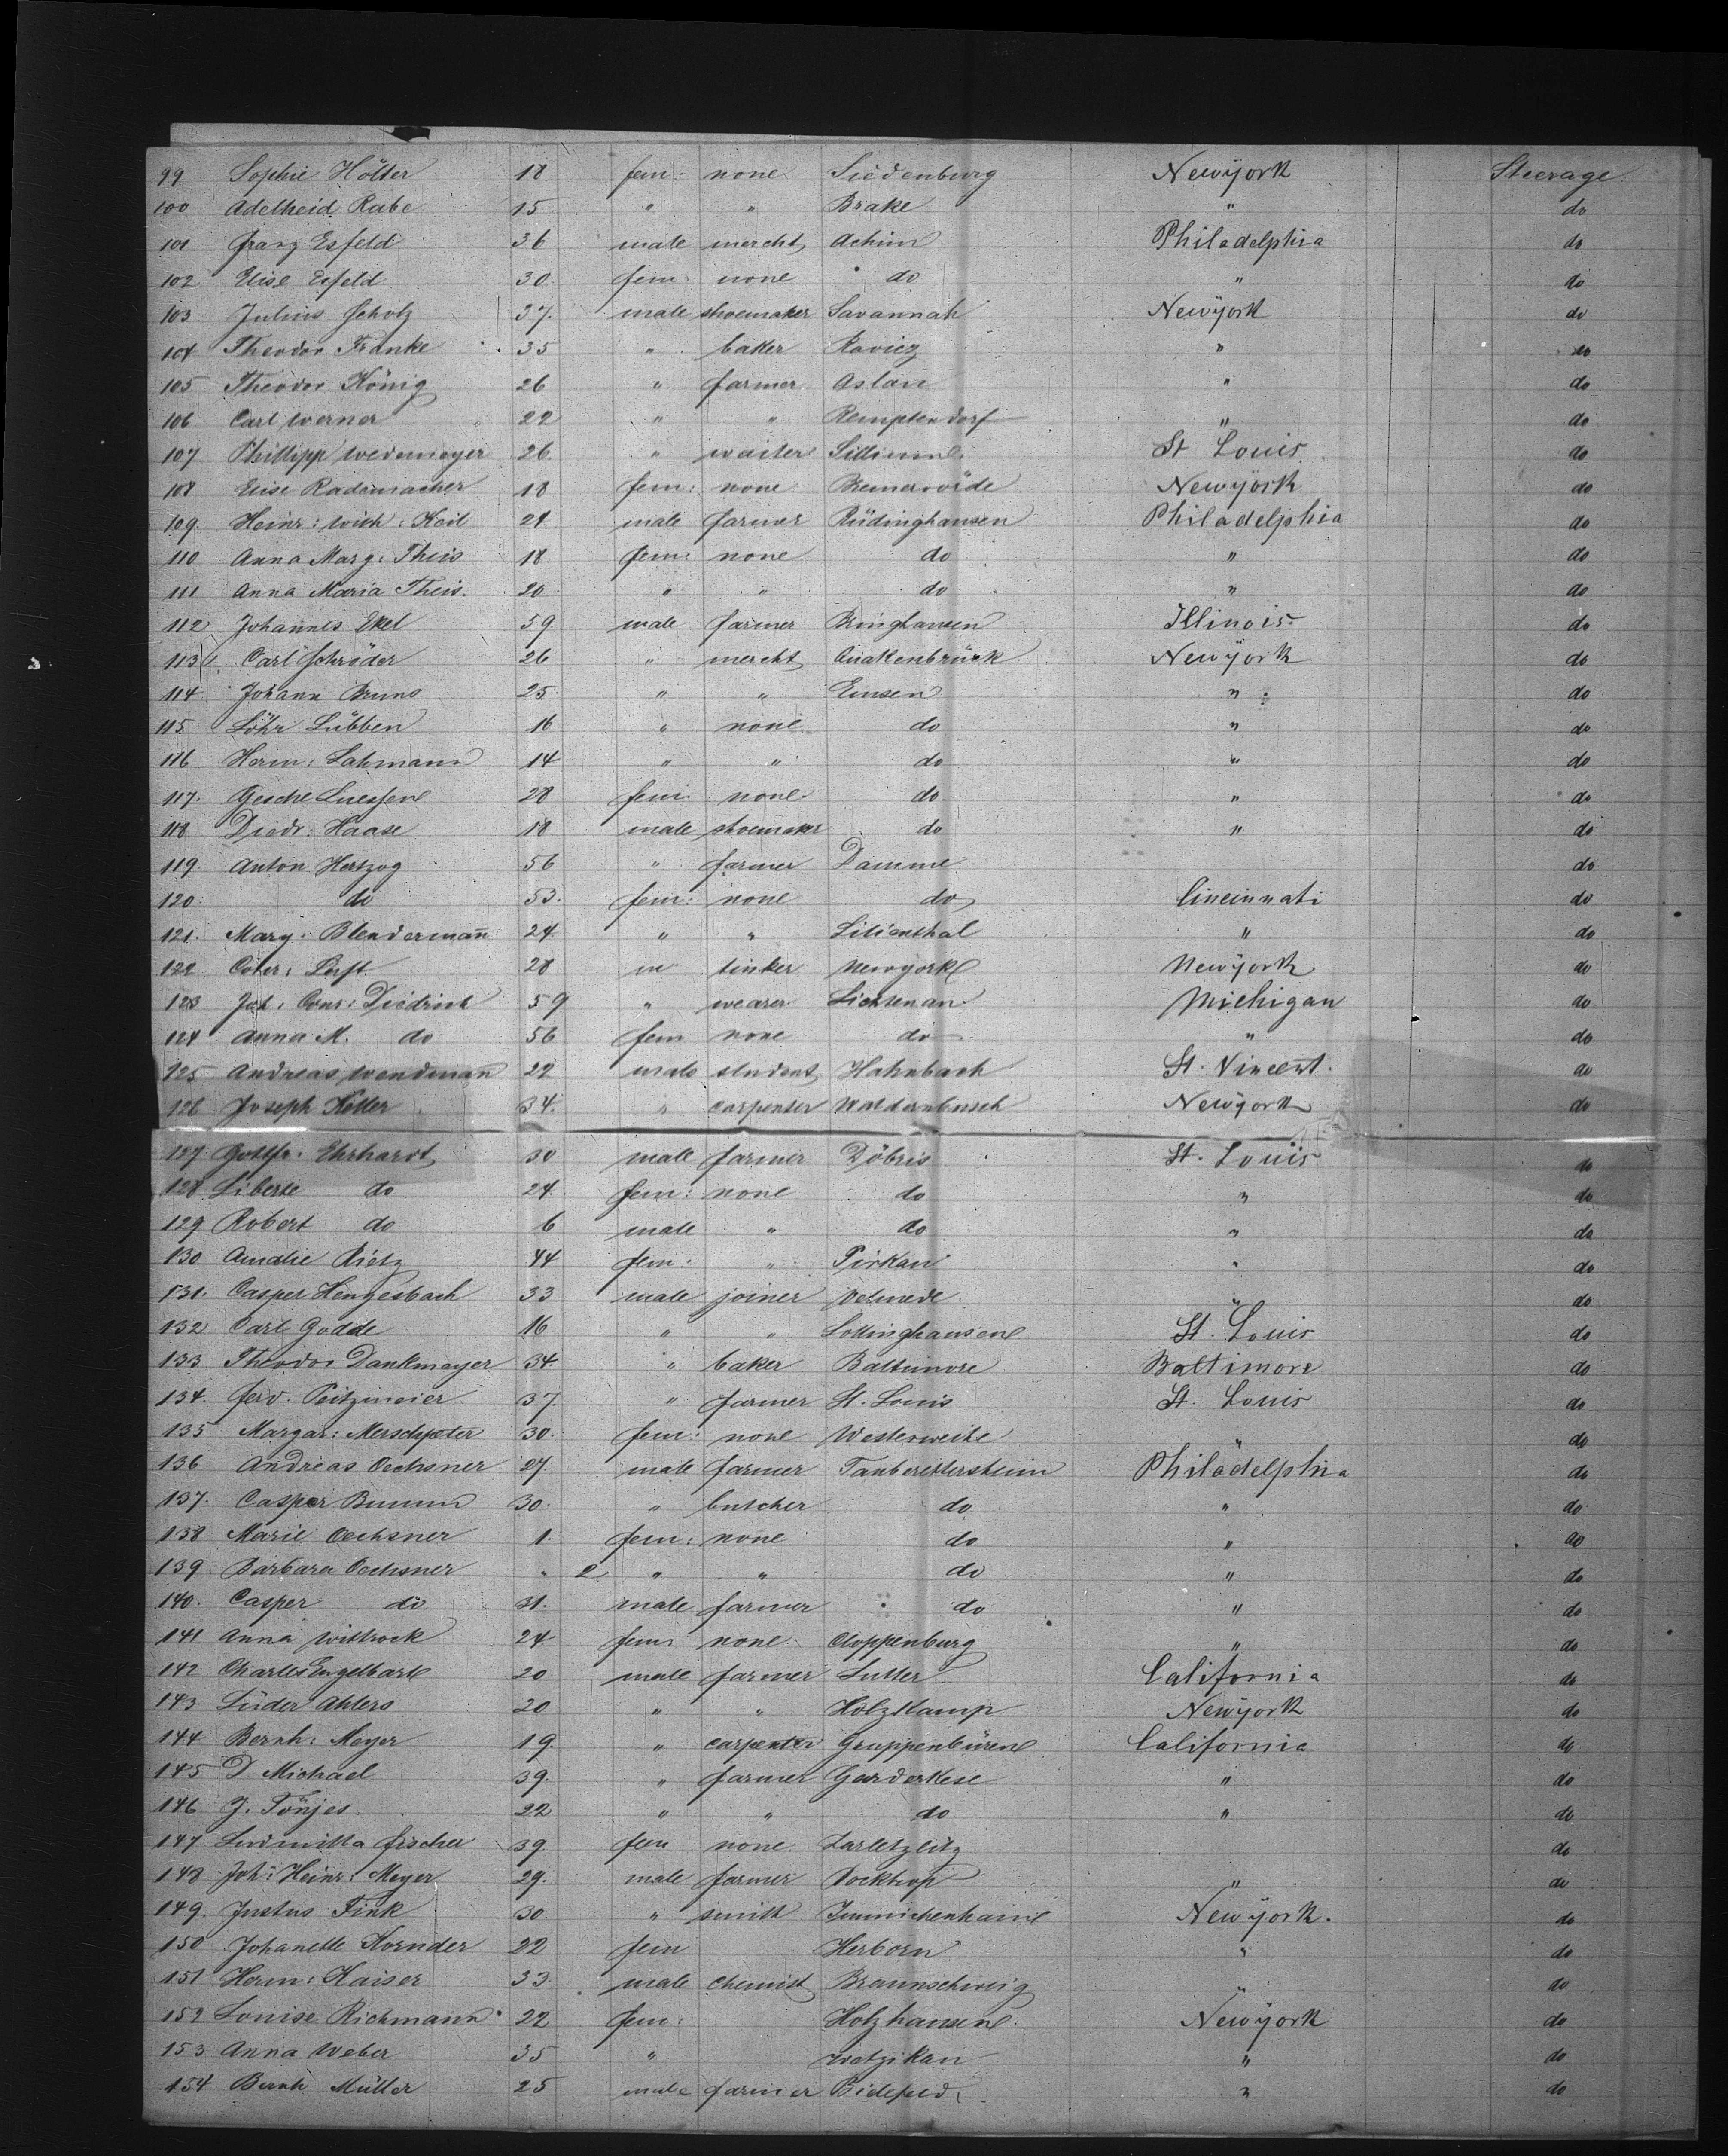 99 Sophie Hölter 18 fem: none Siedenburg Newyork Steerage
100 Adelheid Rabe 15 " " Brake " do
101 Franz Esfeld 36 male mercht Achim Philadelphia do
102 Elise Esfeld 30 fem: none do " do
103 Julius Scholz 37. male shoemaker Savannah Newyork do
104 Theodor Franke 35 " baker Ravicz " do
105 Theodor König 26 " farmer Aslau " do
106 Carl Werner 22 " " Remptendorf " do
107 Phillipp Wedemeyer 26. " waiter St Louis do
108 Elise Rademacher 18 fem: none Bremervörde Newyork do
109. Heinr: Wilh: Keil male farmer Rüdinghausen Philadelphia do
110 Anna Marg: Theis 18 fem: none do " do
111 Anna Maria Theis. 20 " " do " do
112 Johannes Ekel 59 male farmer Bringhausen Illinois do
113 Carl Schröder 26 " mercht Quakenbrück Newyork do
114 Johann Bruns 25 " " Emsen " do
115 Löhr Lübben 16 " none do " do
116 Herm: Lahmann 14 " " do " do
117. Gesche Luessen 28 fem: none do " do
118 Diedr. Haase 18 male shoemaker do " do
119. Anton Hertzog 56 " farmer Damme do
120. do 53. fem: none do Cincinnati do
121. Marg: Blendermann 24. " " Lilienthal " do
122 28 m tinker Newyork Newyork do
123 Joh: Conr: Diedrich 59 " wearer Lichtenau Michigan do
124 Anna M. do 56 fem none do " do
125 Andreas Wendman 22 male student Hahnbach St. Vincent. do
126 Joseph Keller 34. " carpenter Waldernbusch Newyork do
127 Gottfr. Ehrhardt 30 male farmer Döbris St. Louis do
128 Liberte do 24 fem: none do " do
129 Robert do 6 male " do " do
130 Amalie Rietz 44 fem: " Pirkau " do
131. Casper Hengesbach 33 male joiner Velmede " do
132 Carl Godde 16 " " Lottinghausen St. Louis do
133 Theodor Dankmeyer 34 " baker Baltimore Baltimore do
134. Ferd. Peitzmeier 37. " farmer St. Louis St. Louis do
135 Margar: Merschpoter 30. fem: none Westerweihe " do
136 Andreas Oechsner 27 male farmer Tauberettersheim Philadelphia do
137. Casper Bumm 30. " butcher do " do
138 Marie Oechsner 1. fem: none do " do
139 Barbara Oechsner " 2 " " do " do
140. Casper do 31. male farmer do " do
141 Anna Wittrock 24 fem: none Cloppenburg " do
142 Charles Engelbart 20 male farmer Lutter California do
143 Lüder Ahlers 20 " " Holzkamp Newyork do
144 Bernh: Meyer 19. " carpenter Gruppenbüren California do
145 D Michael 39. " farmer Ganderkese " do
146 J. Tönjes 22 " " do " do
147 Ludmilla Fischer 39 fem none do
148 Joh: Heinr: Meyer 29. male farmer Bocktrop " do
149. Justus Fink 30 " smith Immichenhain Newyork. do
150 Johanette Kornder 22 fem Herborn " do
151 Herm: Kaiser 33 male chemist Braunschweig " do
152 Louise Richmann 22 fem: Holzhausen Newyork do
153 Anna Weber 35 " Wetzikan " do
154 Bernh Müller 25 male farmer Bielefeld " do